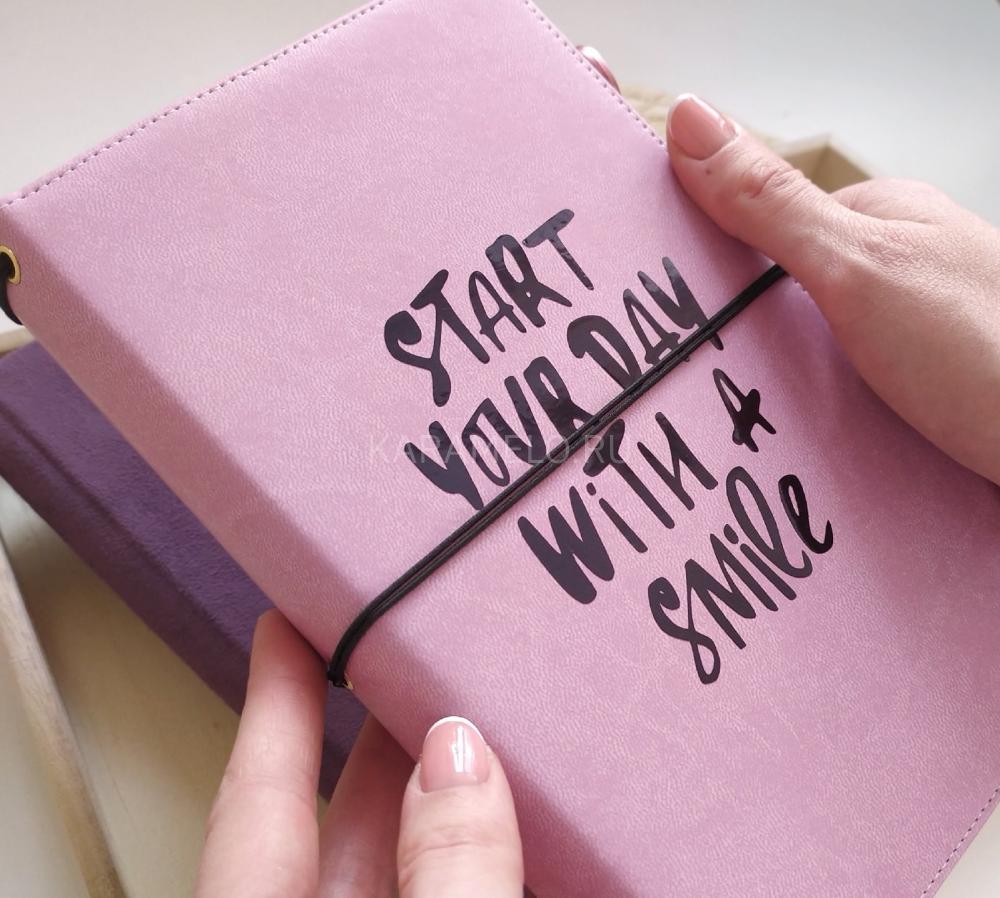 START
YOUR DAY
WiTH A
SMile
KARAMELO.RU